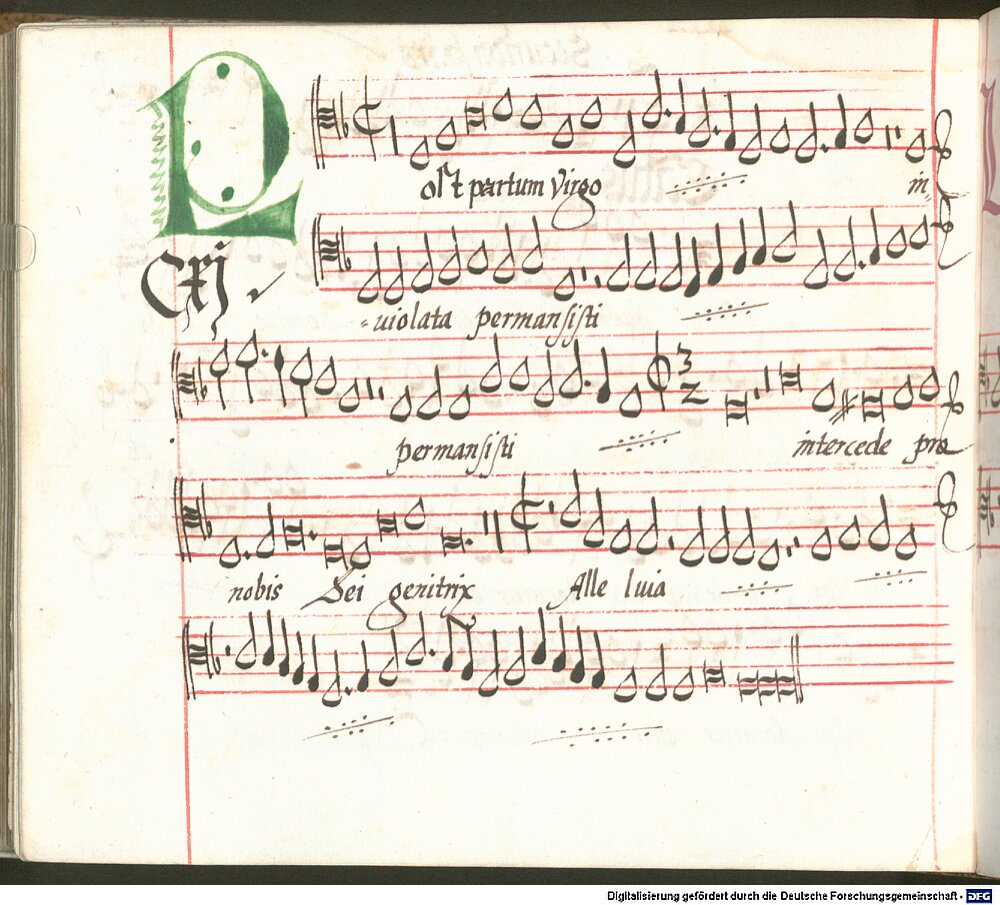 Post partum virgo in-
Cxj
-uiolata permansisti
permansisti
3
2
intercede pro
nobis Dei genitrix Alle luia
Digitalisierung gefördert durch die Deutsche Forschungsgemeinschaft - DFG